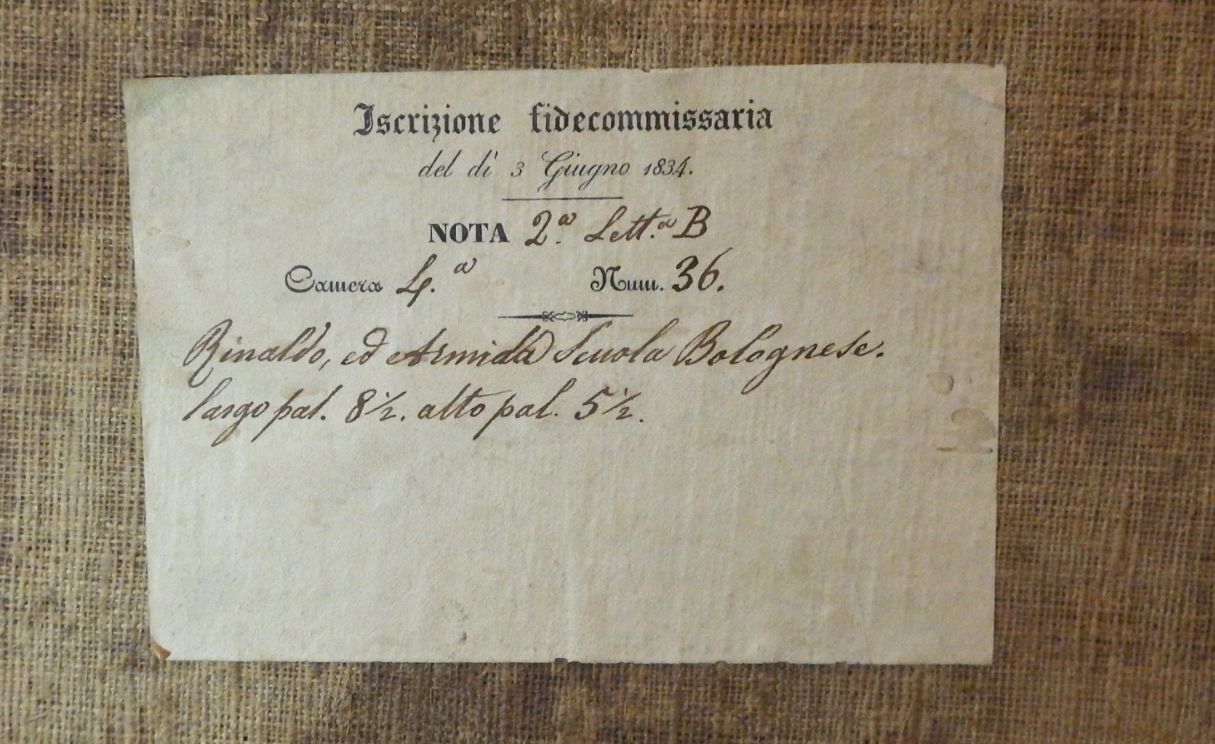 Iscrizione fidecommissaria
del dì 3 Giugno 1834.
NOTA 2.ª Lett.ª B
Camera 4.ª Num. 36.
Rinaldo, ed Armida Scuola Bolognese.
largo pal. 8½. alto pal. 5½.